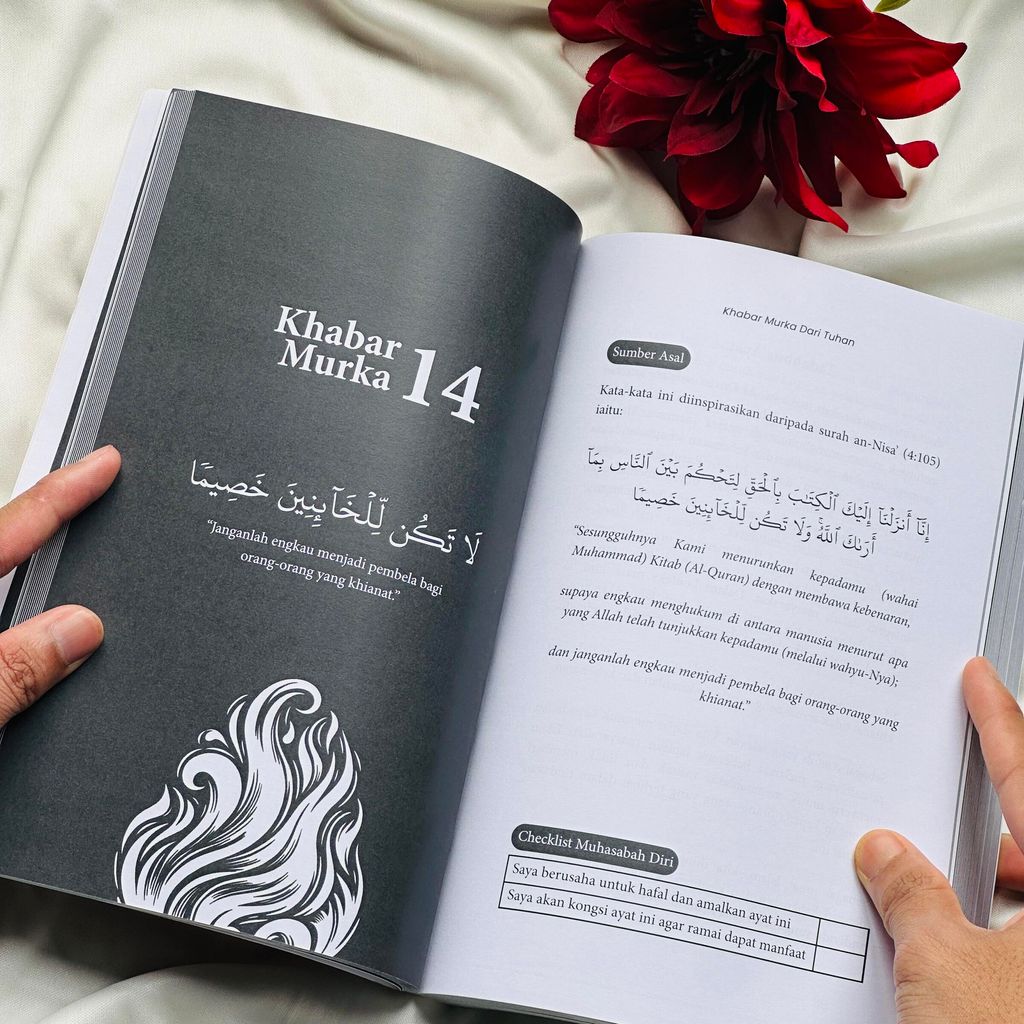 Khabar
Murka 14
لَا تَكُن لِّلْخَآئِنِينَ خَصِيمًا
“Janganlah engkau menjadi pembela bagi
orang-orang yang khianat.”
Khabar Murka Dari Tuhan
Sumber Asal
Kata-kata ini diinspirasikan daripada surah an-Nisa’ (4:105)
iaitu:
إِنَّآ أَنزَلْنَآ إِلَيْكَ ٱلْكِتَٰبَ بِٱلْحَقِّ لِتَحْكُمَ بَيْنَ ٱلنَّاسِ بِمَآ
أَرَىٰكَ ٱللَّهُ ۚ وَلَا تَكُن لِّلْخَآئِنِينَ خَصِيمًا
“Sesungguhnya Kami menurunkan kepadamu (wahai
Muhammad) Kitab (Al-Quran) dengan membawa kebenaran,
supaya engkau menghukum di antara manusia menurut apa
yang Allah telah tunjukkan kepadamu (melalui wahyu-Nya);
dan janganlah engkau menjadi pembela bagi orang-orang yang
khianat.”
Checklist Muhasabah Diri
Saya berusaha untuk hafal dan amalkan ayat ini
Saya akan kongsi ayat ini agar ramai dapat manfaat